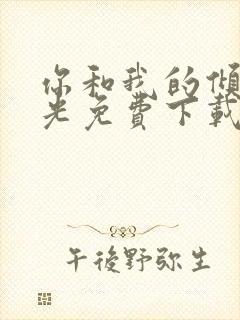 你和我的傾
光免費下載
午後野弥生